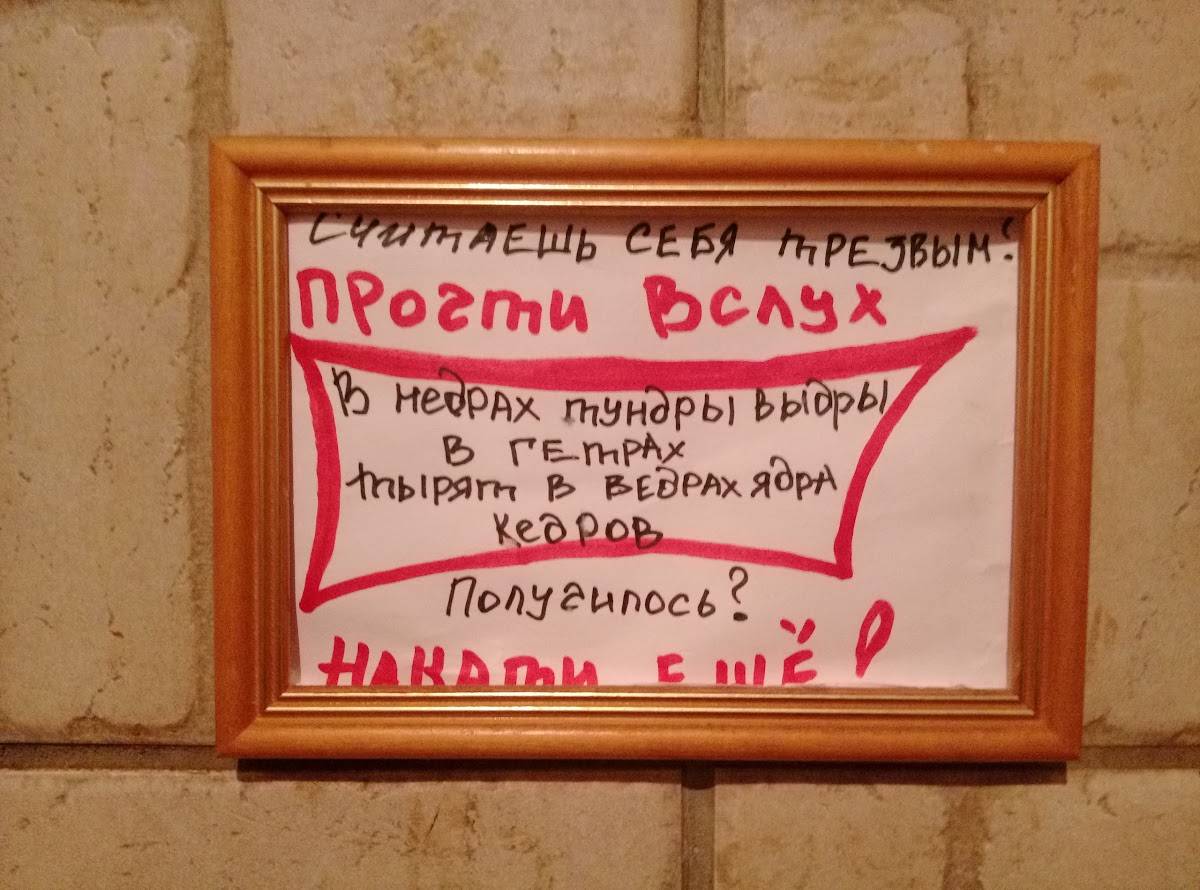 СЧИТАЕШЬ СЕБЯ ТРЕЗВЫМ?
ПРОЧТИ ВСЛУХ
В НЕДРАХ ТУНДРЫ ВЫДРЫ
В ГЕТРАХ
ТЫРЯТ В ВЕДРАХ ЯДРА
КЕДРОВ
Получилось?
НАКАТИ ЕЩЁ!